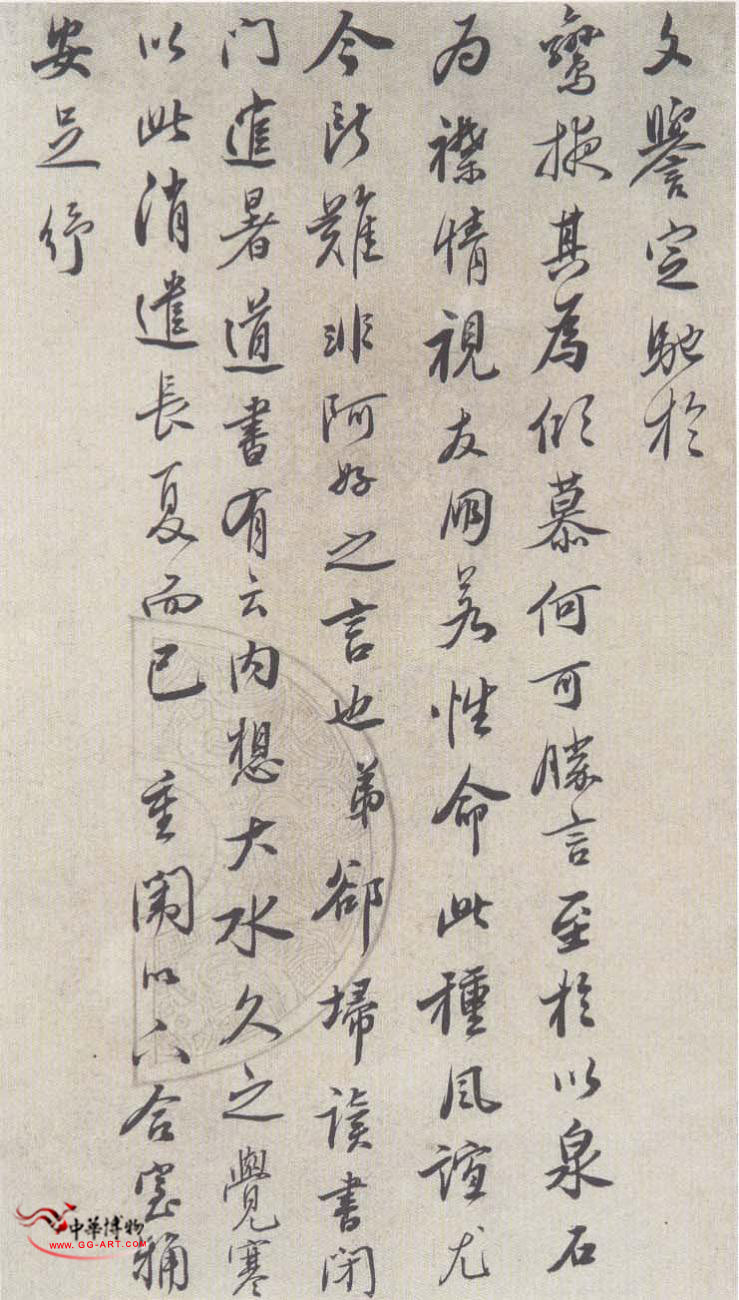 文譽定馳於
鸞掖其為傾慕何可勝言至於以泉石
为襟情視友朋若性命此種風誼尤
今所難非阿好之言也弟卻掃讀書閉
门逭暑道書有云内想大水久之覺寒
以此消遣長夏而已 重闈以下合稱
安足紓
中華博物
www.GG-ART.com